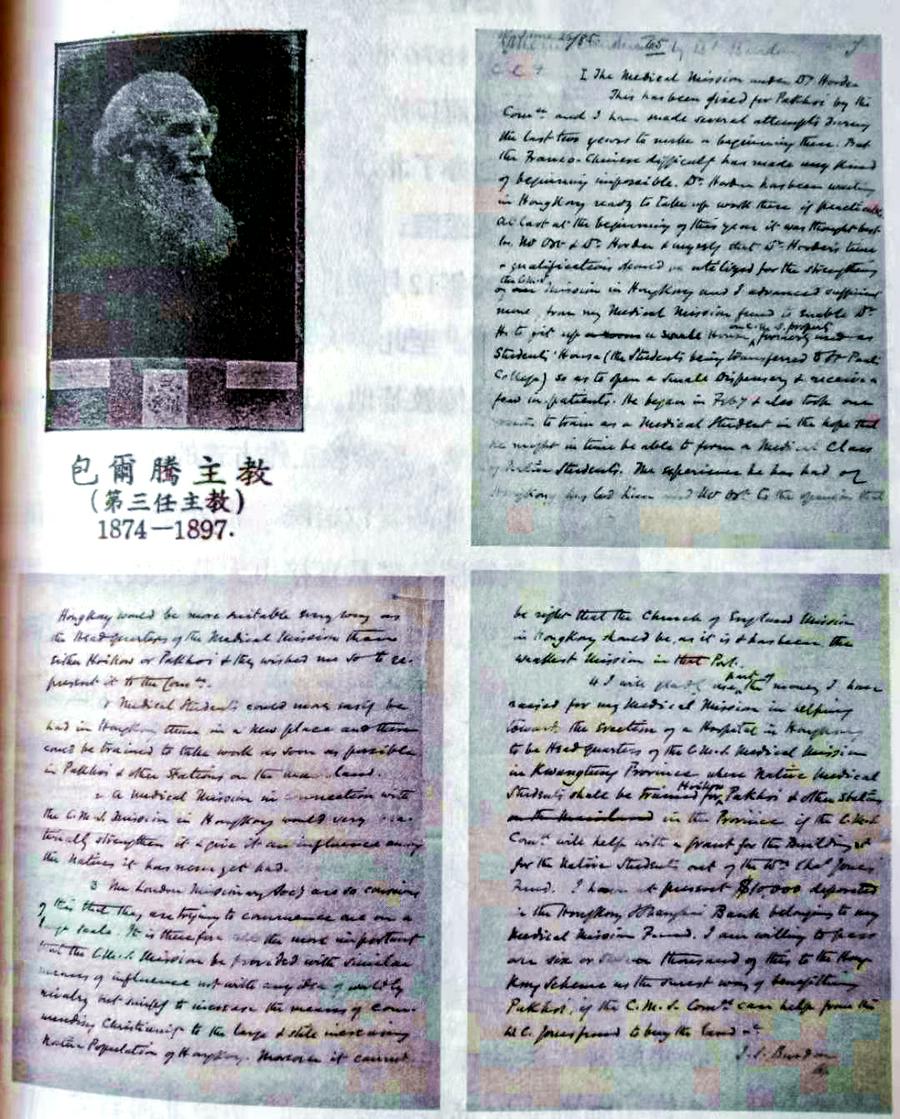 包爾騰主教
(第三任主教)
1874—1897.
June 26/85 by Bp. Burdon
C. C. +
I. The Medical Mission under Dr. Horder
This has been fixed for Pakhoi by the
Comee. and I have made several attempts during
the last two years to make a beginning there. But
the Franco-Chinese difficulty has made any kind
of beginning impossible. Dr. Horder has been waiting
in Hongkong ready to take up work there if practicable.
At last at the beginning of this year it was thought best
by Mr Ost & Dr. Horder & myself that Dr. Horder's time
& qualifications should be utilized for the strengthening
of our Mission in Hongkong and I advanced sufficient
money from my Medical Mission fund to enable Dr.
H. to fit up a small House, one C.M.S. property formerly used as
Students' House (the Students being transferred to St Paul's
College) so as to open a small Dispensary & receive a
few in patients. He began in Feby & also took one
to train as a Medical Student in the hope that
he might in time be able to form a Medical Class
of Native Students. The experience he has had of
Hongkong has led him and Mr Ost to the opinion that
Hongkong would be more suitable every way as
the Head Quarters of the Medical Mission than
either Hoihow or Pakhoi & they wished me so to re-
present it to the Comee.
1 Medical Students could more easily be
had in Hongkong than in a new place and these
could be trained to take work as soon as possible
in Pakhoi & other Stations on the main land.
2. A Medical Mission in connection with
the C.M.S. Mission in Hongkong would very ma-
terially strengthen it & give it an influence among
the Natives it has never yet had.
3 The London Missionary Socy are so conscious
of this that they are trying to commence one on a
large scale. It is therefore all the more important
that the C.M.S. Mission be provided with similar
means of influence not with any idea of worldly
rivalry but simply to increase the means of com-
mending Christianity to the large & still increasing
Native Population of Hongkong. Moreover it cannot
be right that the Church of England Mission
in Hongkong should be, as it is & has been the
weakest Mission in that Port.
4 I will gladly use part of the money I have
raised for my Medical Mission in helping
towards the erection of a Hospital in Hongkong
to be Head Quarters of the C.M.S. Medical Mission
in Kwangtung Province where Native Medical
Students shall be trained for Hoihow, Pakhoi & other Stations
in the Province if the C.M.S.
Comee. will help with a grant for the Building &
for the Native Students out of the Wm. Chas. Jones'
Fund. I have at present $10,000 deposited
in the Hongkong & Shanghai Bank belonging to my
Medical Mission Fund. I am willing to pass
over six or seven thousand of this to the Hong-
kong Scheme as the surest way of benefiting
Pakhoi, if the C.M.S. Comee. can help from the
W. C. Jones fund to buy the land &c.
J. S. Burdon